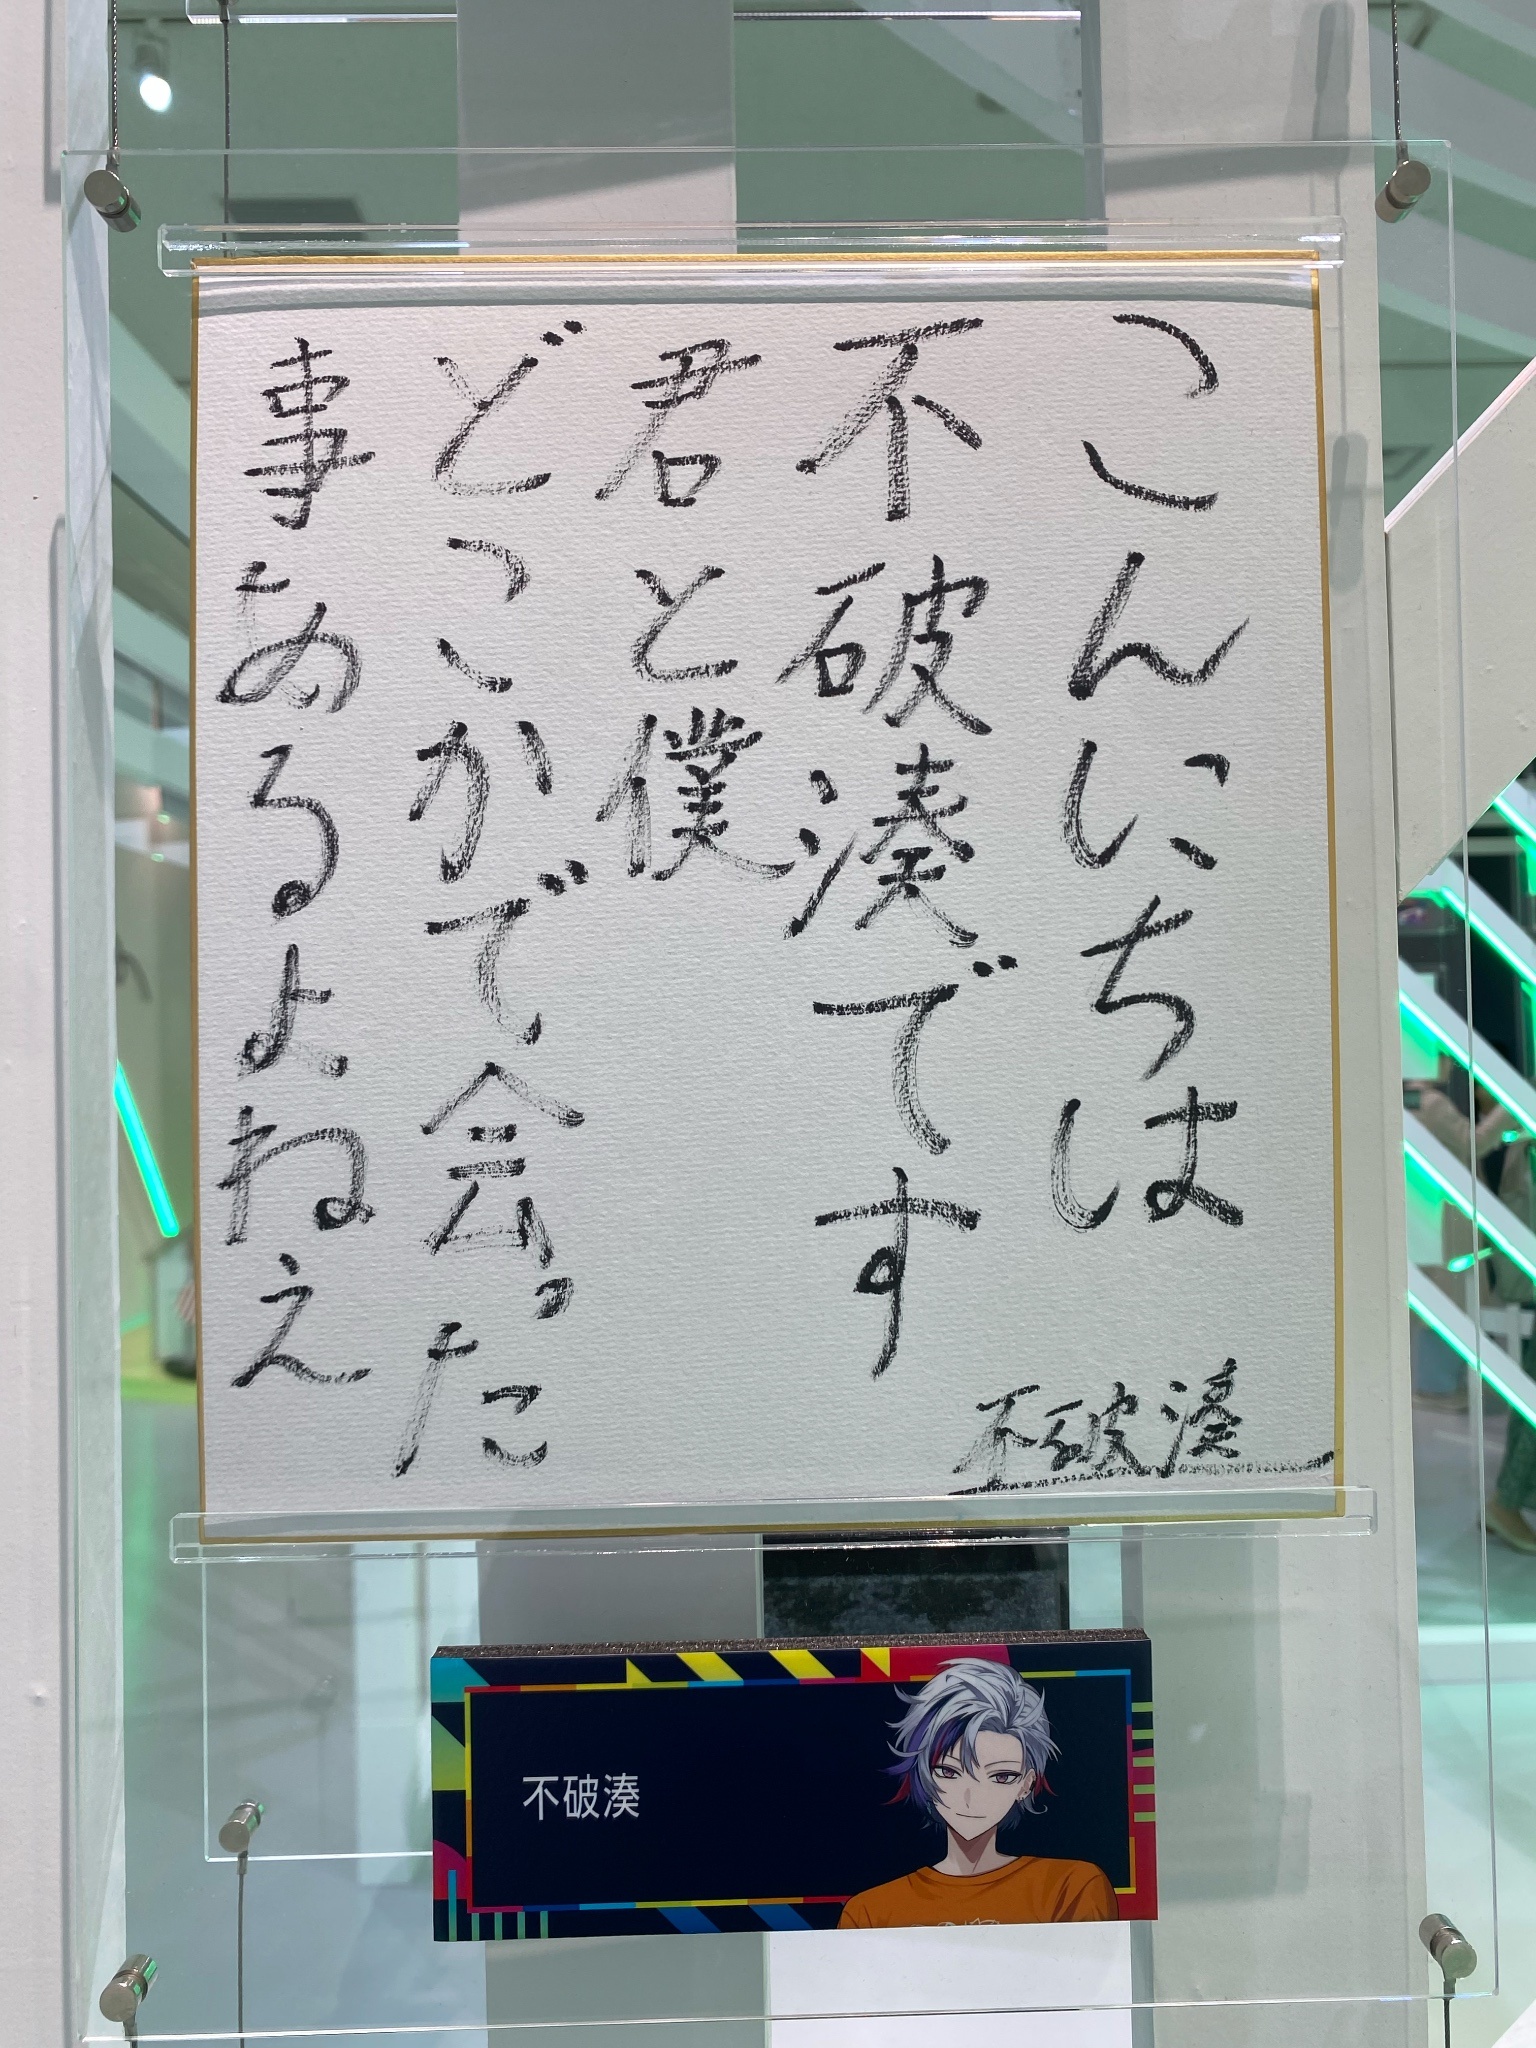 こんにちは
不破湊です
君と僕
どこかで会った
事あるよねえ
不破湊
不破湊